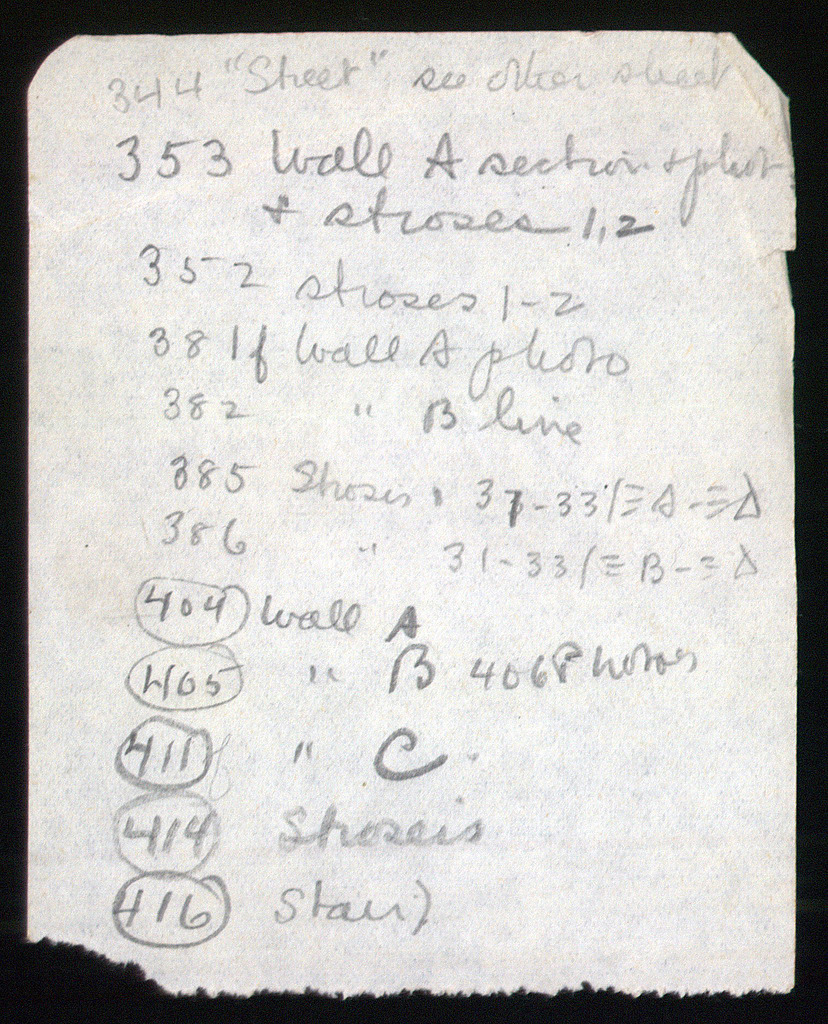 344 "Street" see other sheet
353 Wall A section + photo
+ stroses 1,2
352 stroses 1-2
381f Wall A photo
382 " B line
385 Stroses 31-33/Ξ A-Ξ Δ
386 " 31-33/Ξ B-Ξ Δ
404 Wall A
405 " B 406 Photos
411f " C.
414 Stroseis
416 Stair)